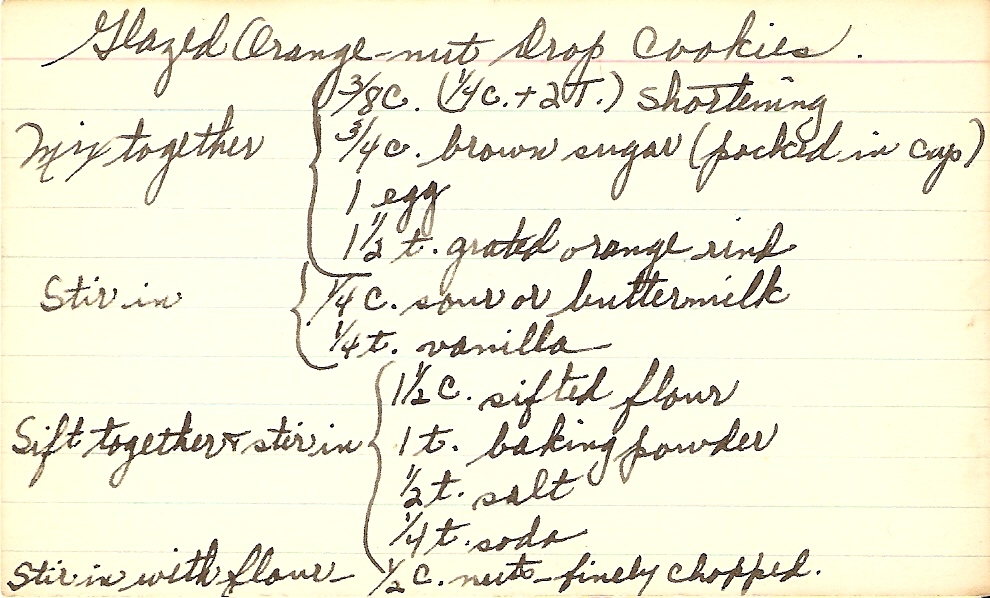 Glazed Orange-nut Drop Cookies.
3/8 c. (1/4 c. + 2 T.) shortening
Mix together 3/4 c. brown sugar (packed in cup)
1 egg
1 1/2 t. grated orange rind
Stir in 1/4 c. sour or buttermilk
1/4 t. vanilla
1 1/2 c. sifted flour
Sift together & stir in 1 t. baking powder
1/2 t. salt
1/4 t. soda
Stir in with flour - 1/2 c. nuts - finely chopped.